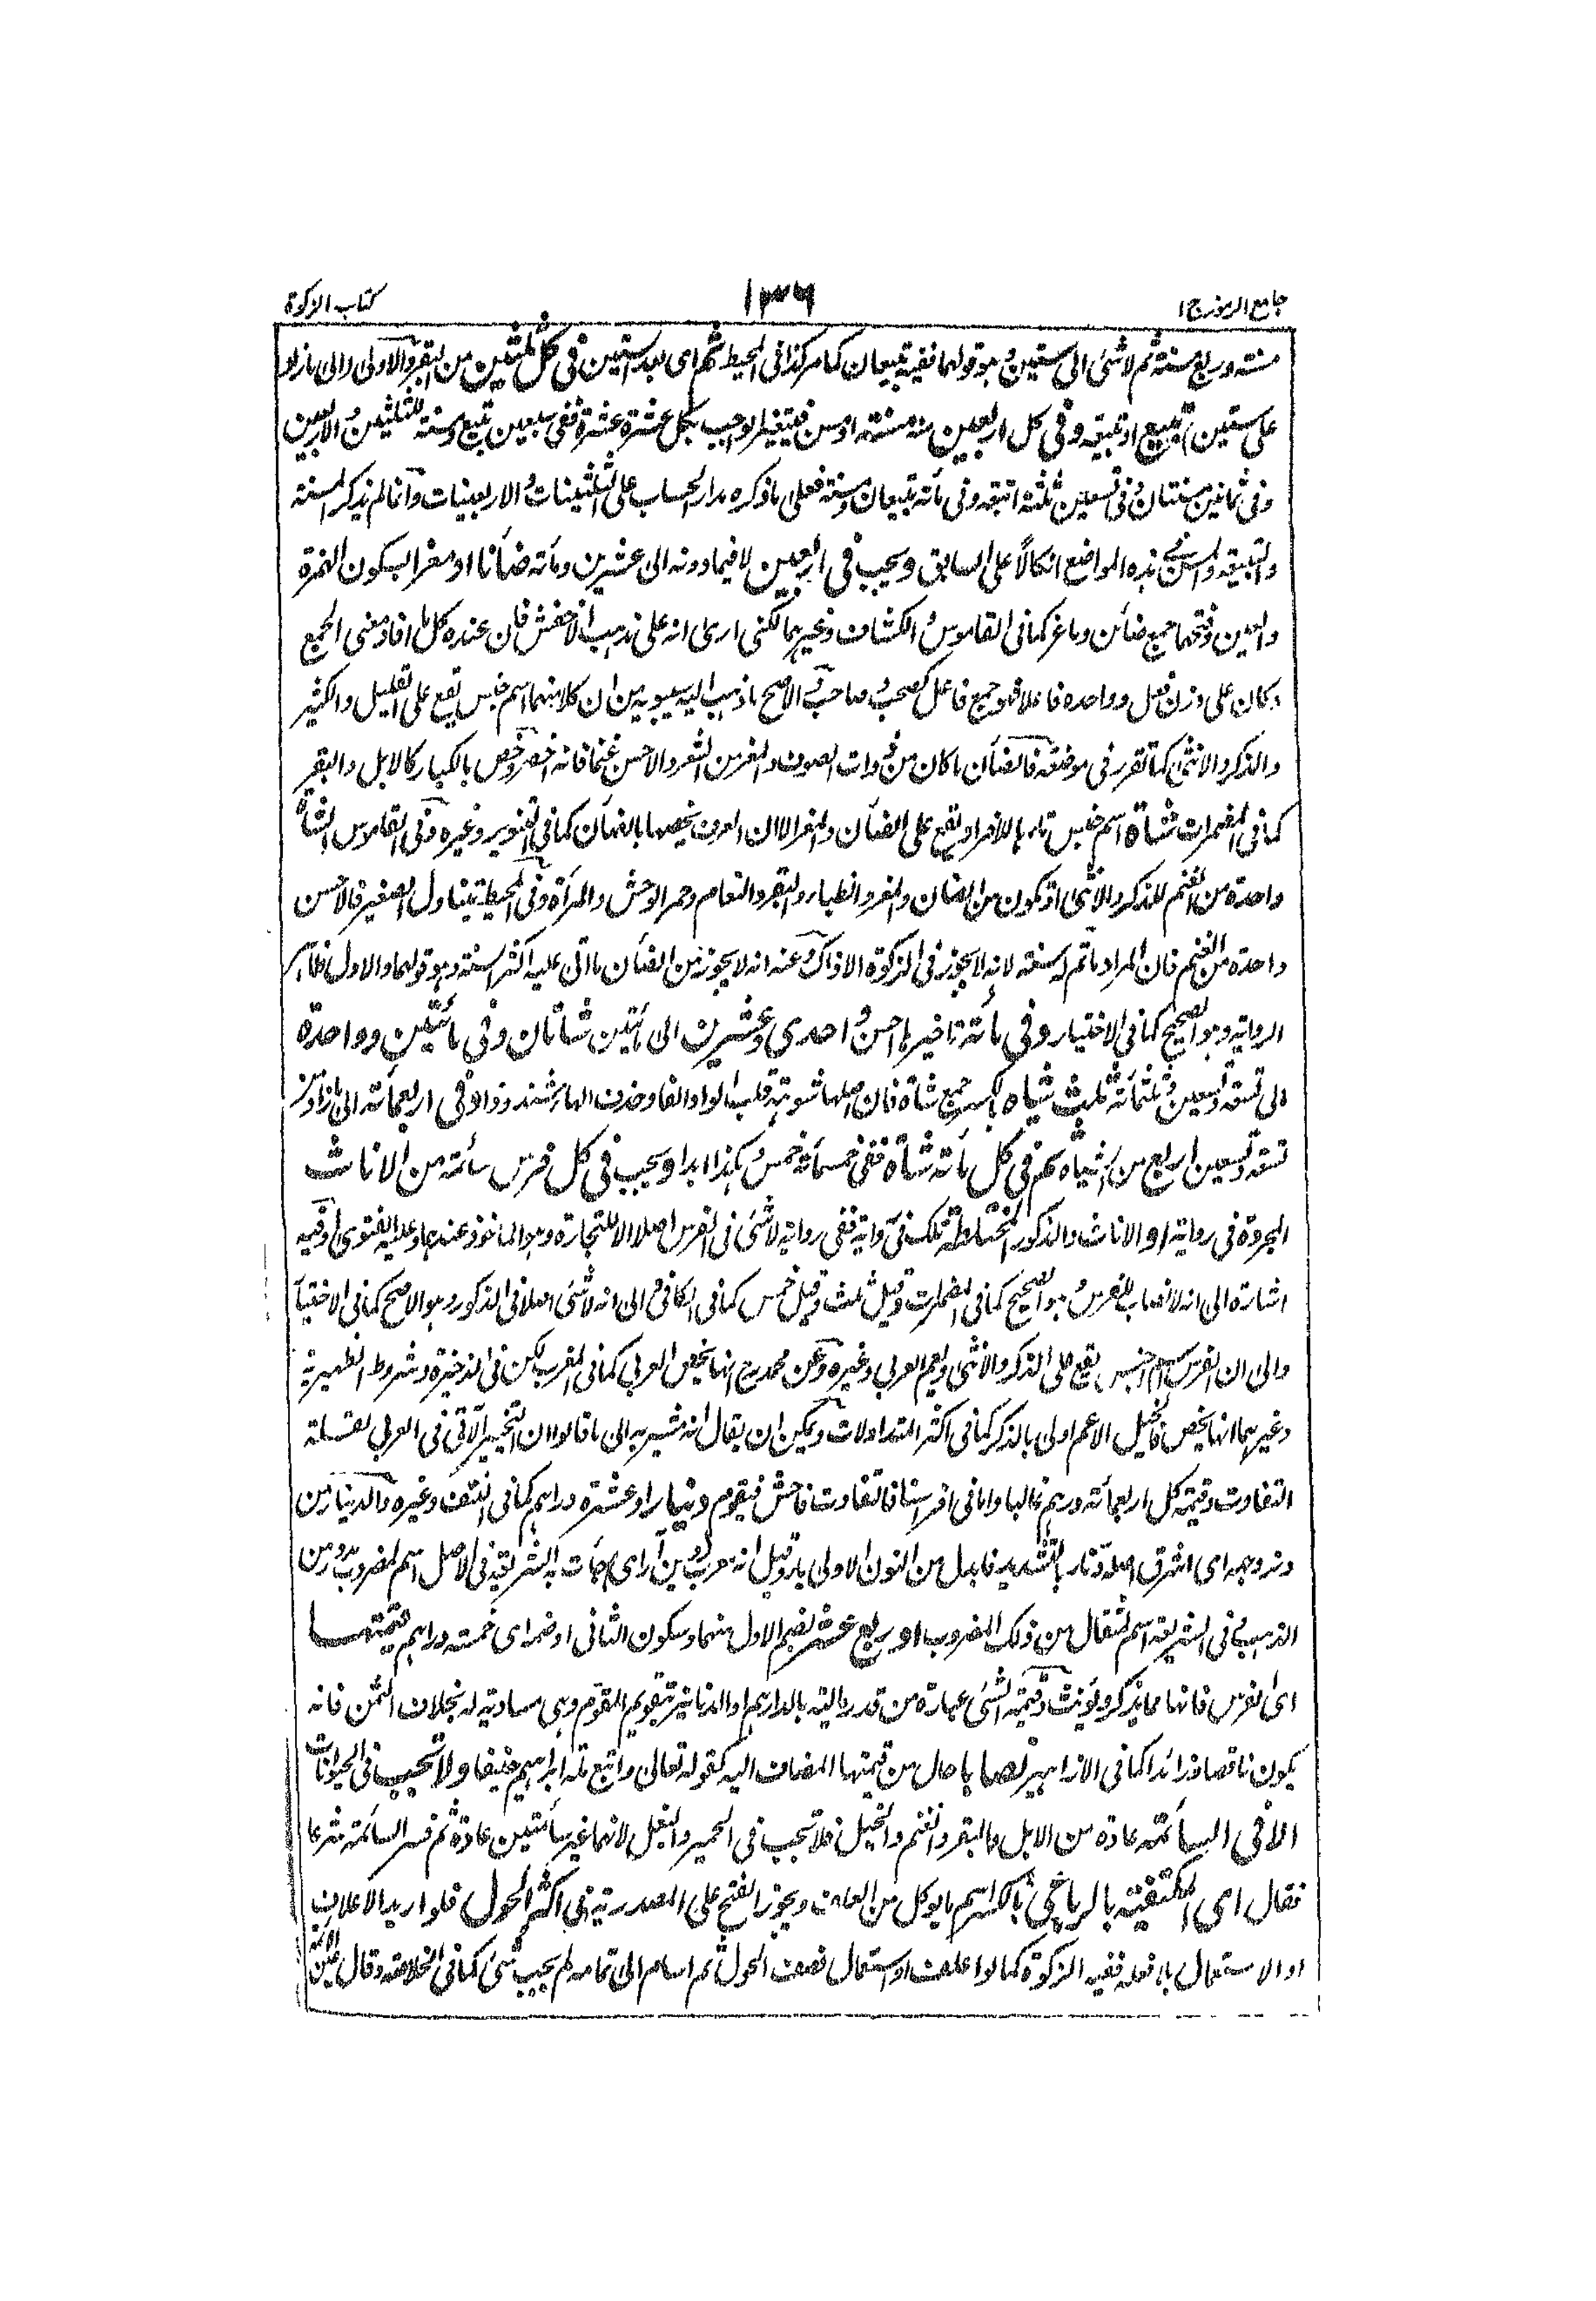 جامع الرموز ج ١
١٣٦
كتاب الزكوة
مسنة وربع مسنة ثم لا شئ الى ستين و هو قولهما ففيه تبيعان كما مر كذا فى المحيط ثم اى بعد الستين فى كل ثلثين من البقر والاولى والى ما زاد
على ستين تبيع او تبيعة وفى كل اربعين منه مسنة او مسن فيتغير الوجب بكل عشرة عشرة ففى سبعين تبيع ومسنة للثلثين والاربعين
وفى ثمانين مسنتان وفى تسعين ثلثة اتبعة وفى مائة تبيعان ومسنة فعلى ما ذكره مدار الحساب على الثلثينات والاربعينات وانما لم يذكر المسنة
والتبيعة والمسن فى هذه المواضع اتكالاً على السابق ويجب فى اربعين لا فيما دونه الى عشرين ومائة ضأنا او معزا بسكون الهمزة
والعين وفتحها جمع ضائن وماعز كما فى القاموس والكشاف وغيرهما لكنى ارى انه على مذهب الاخفش فان عنده كل ما افاد معنى الجمع
وكان على وزن فعل وواحده فاعلا فهو جمع فاعل كصحب وصاحب والاصح ما ذهب اليه سيبويه من ان كلا منهما اسم جنس يقع على القليل والكثير
والذكر والانثى كما تقرر فى موضعه فالضأن ما كان من ذوات الصوف والمعز من الشعر والاحسن غنما فانه اخصر وخص بالكبار كالابل والبقر
كما فى المضمرات شاة اسم جنس تاءها للافراد يقع على الضأن والمعز الا ان العرف يخصها بالضأن كما فى التنوير وغيره وفى القاموس الشاة
واحدة من الغنم للذكر والانثى او تكون من الضأن والمعز والظباء والبقر والنعام وحمر الوحش والمرأة وفى المحيط يتناول الصغير فالاحسن
واحدة من الغنم فان المراد ما تم له سنة لانه لا يجوز فى الزكوة الا ذاك وعنه انه لا يجوز من الضأن ما اتى عليه اكثر السنة وهو قولهما والاول ظاهر
الرواية وهو الصحيح كما فى الاختيار وفى مائة تاخيرها احسن و احدى وعشرين الى مائتين شاتان وفى مائتين وواحدة
الى تسعة وتسعين وثلثمائة ثلث شياه بالكسر جمع شاة فان اصلها شوهة قلب الواو الفا وحذف الهاء شذوذا وفى اربعمائة الى ما زاد من
تسعة وتسعين اربع من الشياه ثم فى كل مائة شاة ففى خمسمائة خمس وهكذا ابدا ويجب فى كل فرس سائمة من الاناث
المجردة فى رواية او الاناث والذكور المختلطة تلك فى رواية ففى رواية لا شئ فى الفرس اصلا الا للتجارة وهو الماخوذ عندهما وعليه الفتوى وفيه
اشارة الى انه لا نصاب للفرس وهو الصحيح كما فى المضمرات وقيل ثلث وقيل خمس كما فى الكافى والى انه لا شئ اصلا فى الذكور وهو الاصح كما فى الاختيار
والى ان الفرس اسم جنس يقع على الذكر والانثى ويعم العربى وغيره وعن محمد رح انها يخص العربى كما فى المغرب لكن فى الذخيرة وشروط الظهيرية
وغيرهما انها يخص فالخيل الاعم اولى بالذكر كما فى اكثر المتداولات ويمكن ان يقال انه مشير به الى ما قالوا ان التخيير الآتى فى العربى لقلة
التفاوت وقيمة كل اربعمائة درهم غالبا واما فى افراسنا فالتفاوت فاحش فيقوم دينارا او عشرة دراهم كما فى النتف وغيره والدينار من
دنر وجهه اى اشرق اصله دنار بالتشديد فابدل من النون الاولى ياء وقيل انه معرب دين آر اى جاءت به الشريعة فى الاصل اسم لمضروب مدور من
الذهب وفى الشريعة اسم لمثقال من ذلك المضروب او ربع عشر بضم الاول منهما وسكون الثانى او ضمه اى خمسة دراهم قيمتها
اى الفرس فانها مما يذكر ويؤنث وقيمة الشئ عبارة من قدر مالية بالدراهم او الدنانير بتقويم المقوم وهى مساوية له بخلاف الثمن فانه
يكون ناقصا وزائدا كما فى الازاهير نصابا حال من قيمتها المضاف اليه كقوله تعالى واتبع ملة ابراهيم حنيفا ولا تجب فى الحيوانات
الا فى السائمة عادة من الابل والبقر والغنم والخيل فلا تجب فى الحمير والبغل لانهما غير سائمتين عادة ثم فسر السائمة شرعا
فقال اى المكتفية بالرعى بالكسر اسم ما يوكل من العلف ويجوز الفتح على المصدرية فى اكثر الحول فلو اريد الاعلاف
او الاستعمال بلا فعله ففيه الزكوة كما لو اعلف او استعمال نصف الحول ثم اسام الى تمامه لم يجب شئ كما فى الخلاصة وقال عين الائمة